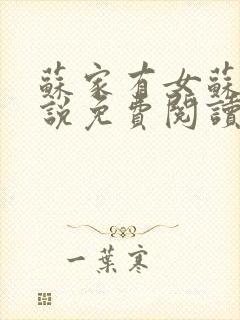 蘇家有女蘇
說免費閱讀
一葉寒